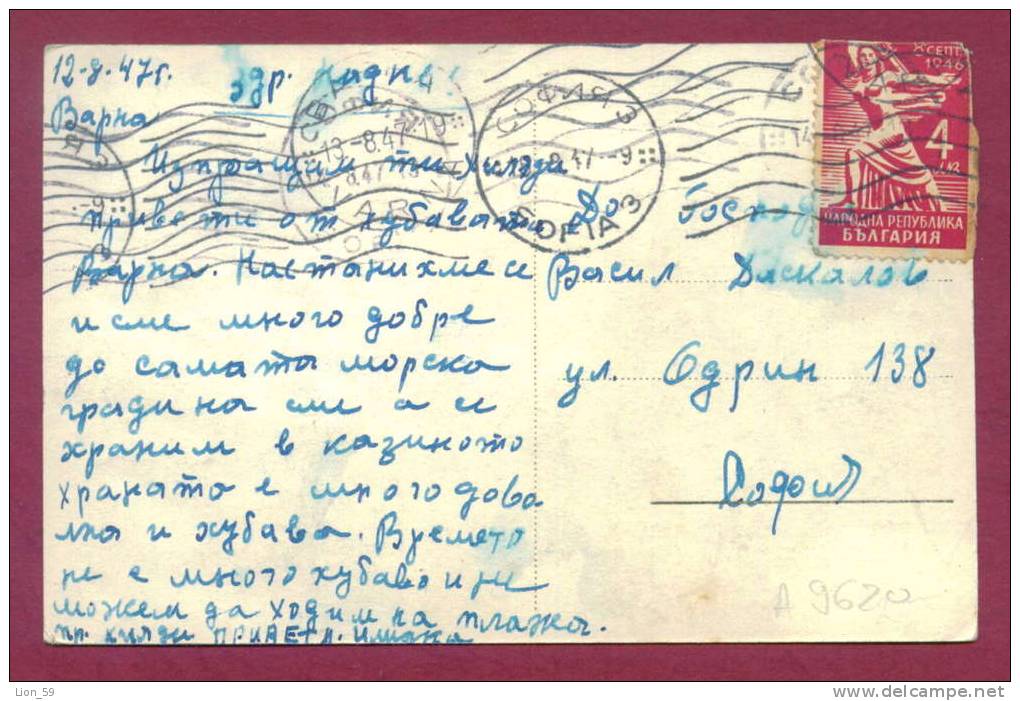 12-8-47г.
здр.
Варна
Изпращам ти хиляди
привети от хубавата
Варна. Настанихме се
и сме много добре
до самата морска
градина сме а се
храним в казиното
храната е много дово
лна и хубава. Времето
не е много хубаво и не
можем да ходим на плажа.
пр. хиляди ПРИВЕТ
До Господин
Васил Даскалов
ул. Одрин 138
София
8 СЕПТ.
1946
4
ЛВ.
НАРОДНА РЕПУБЛИКА
БЪЛГАРИЯ
СОФИЯ 3
SOFIA 3
13-8.47-19
А 9620
Lion_59
www.delcampe.net